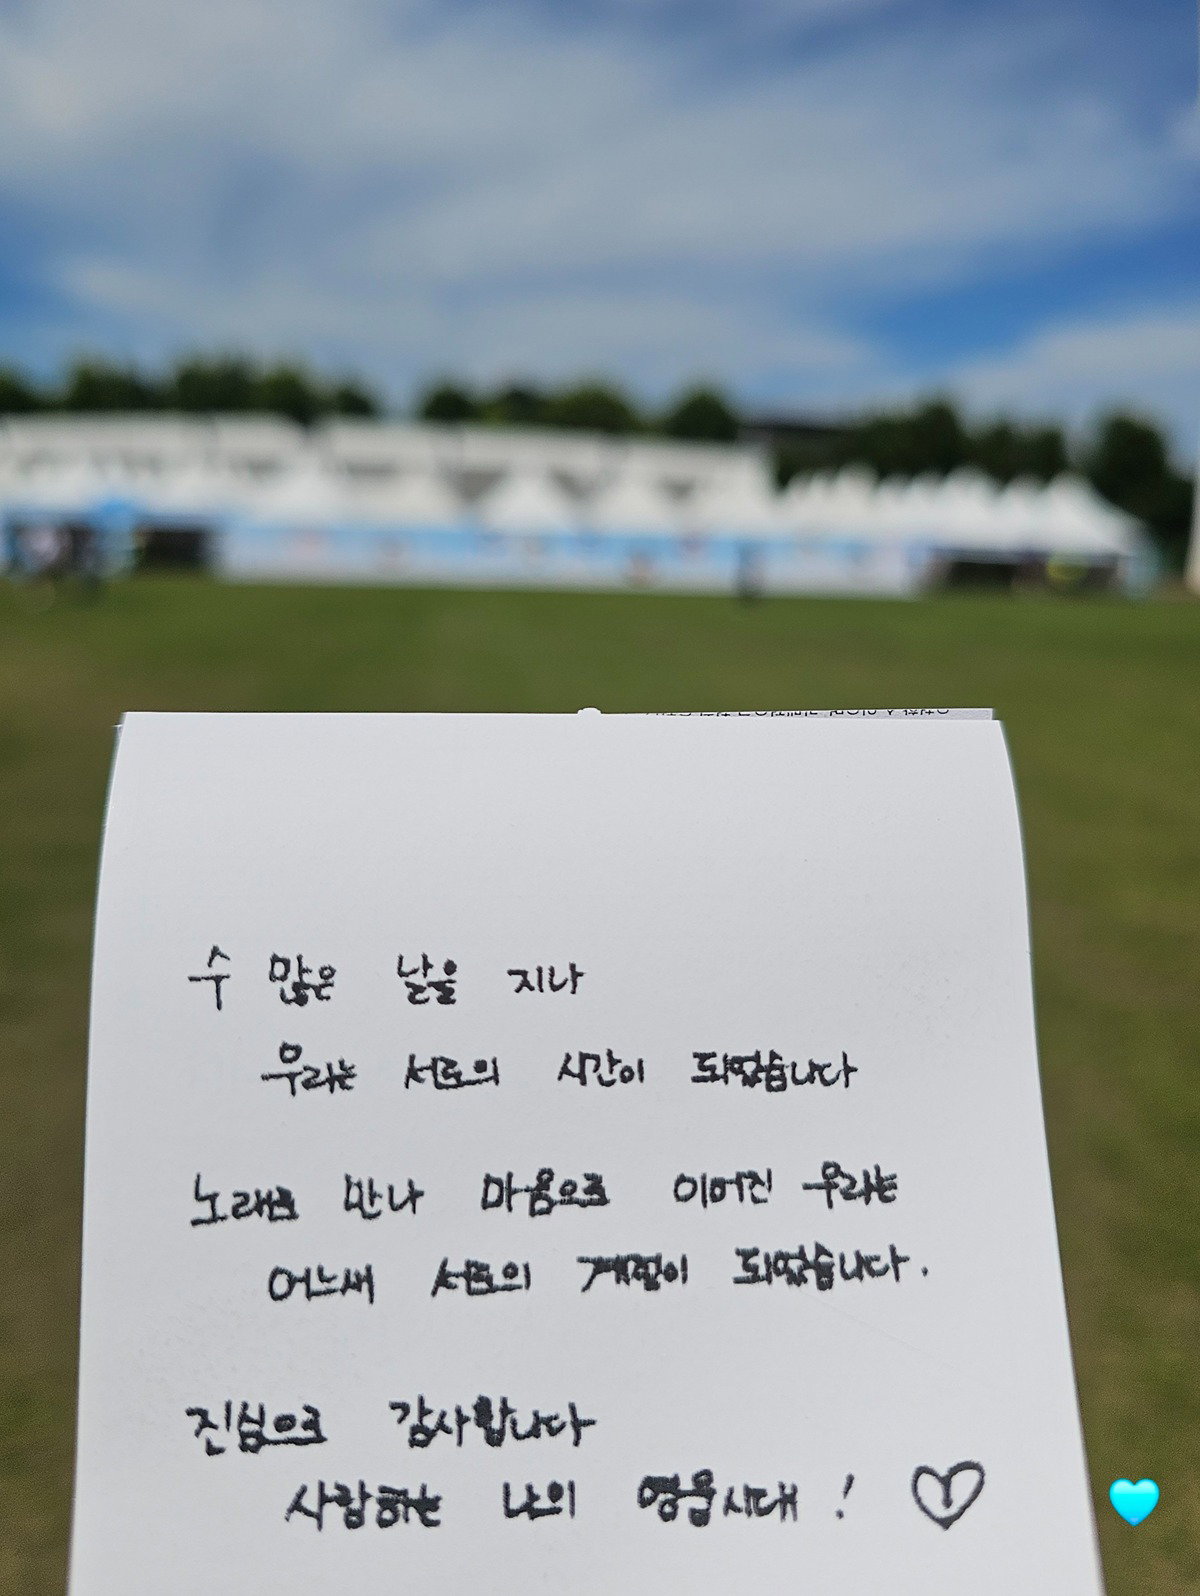 수 많은 날을 지나
우리는 서로의 시간이 되었습니다
노래로 만나 마음으로 이어진 우리는
어느새 서로의 계절이 되었습니다.
진심으로 감사합니다
사랑하는 나의 영웅시대!